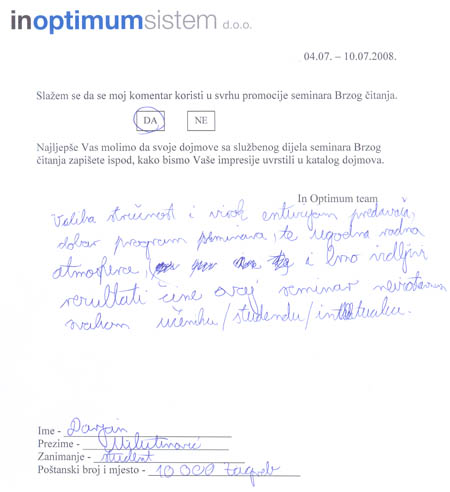 inoptimumsistem d.o.o.
04.07. – 10.07.2008.
Slažem se da se moj komentar koristi u svrhu promocije seminara Brzog čitanja.
DA NE
Najljepše Vas molimo da svoje dojmove sa službenog dijela seminara Brzog
čitanja zapišete ispod, kako bismo Vaše impresije uvrstili u katalog dojmova.
In Optimum team
Velika stručnost i visok entuzijazam predavača,
dobar program seminara, te ugodna radna
atmosfera, i brzo vidljivi
rezultati čine ovaj seminar
svakom učeniku/studentu/
Ime - Darjan
Prezime - Milutinović
Zanimanje - student
Poštanski broj i mjesto - 10 000 Zagreb